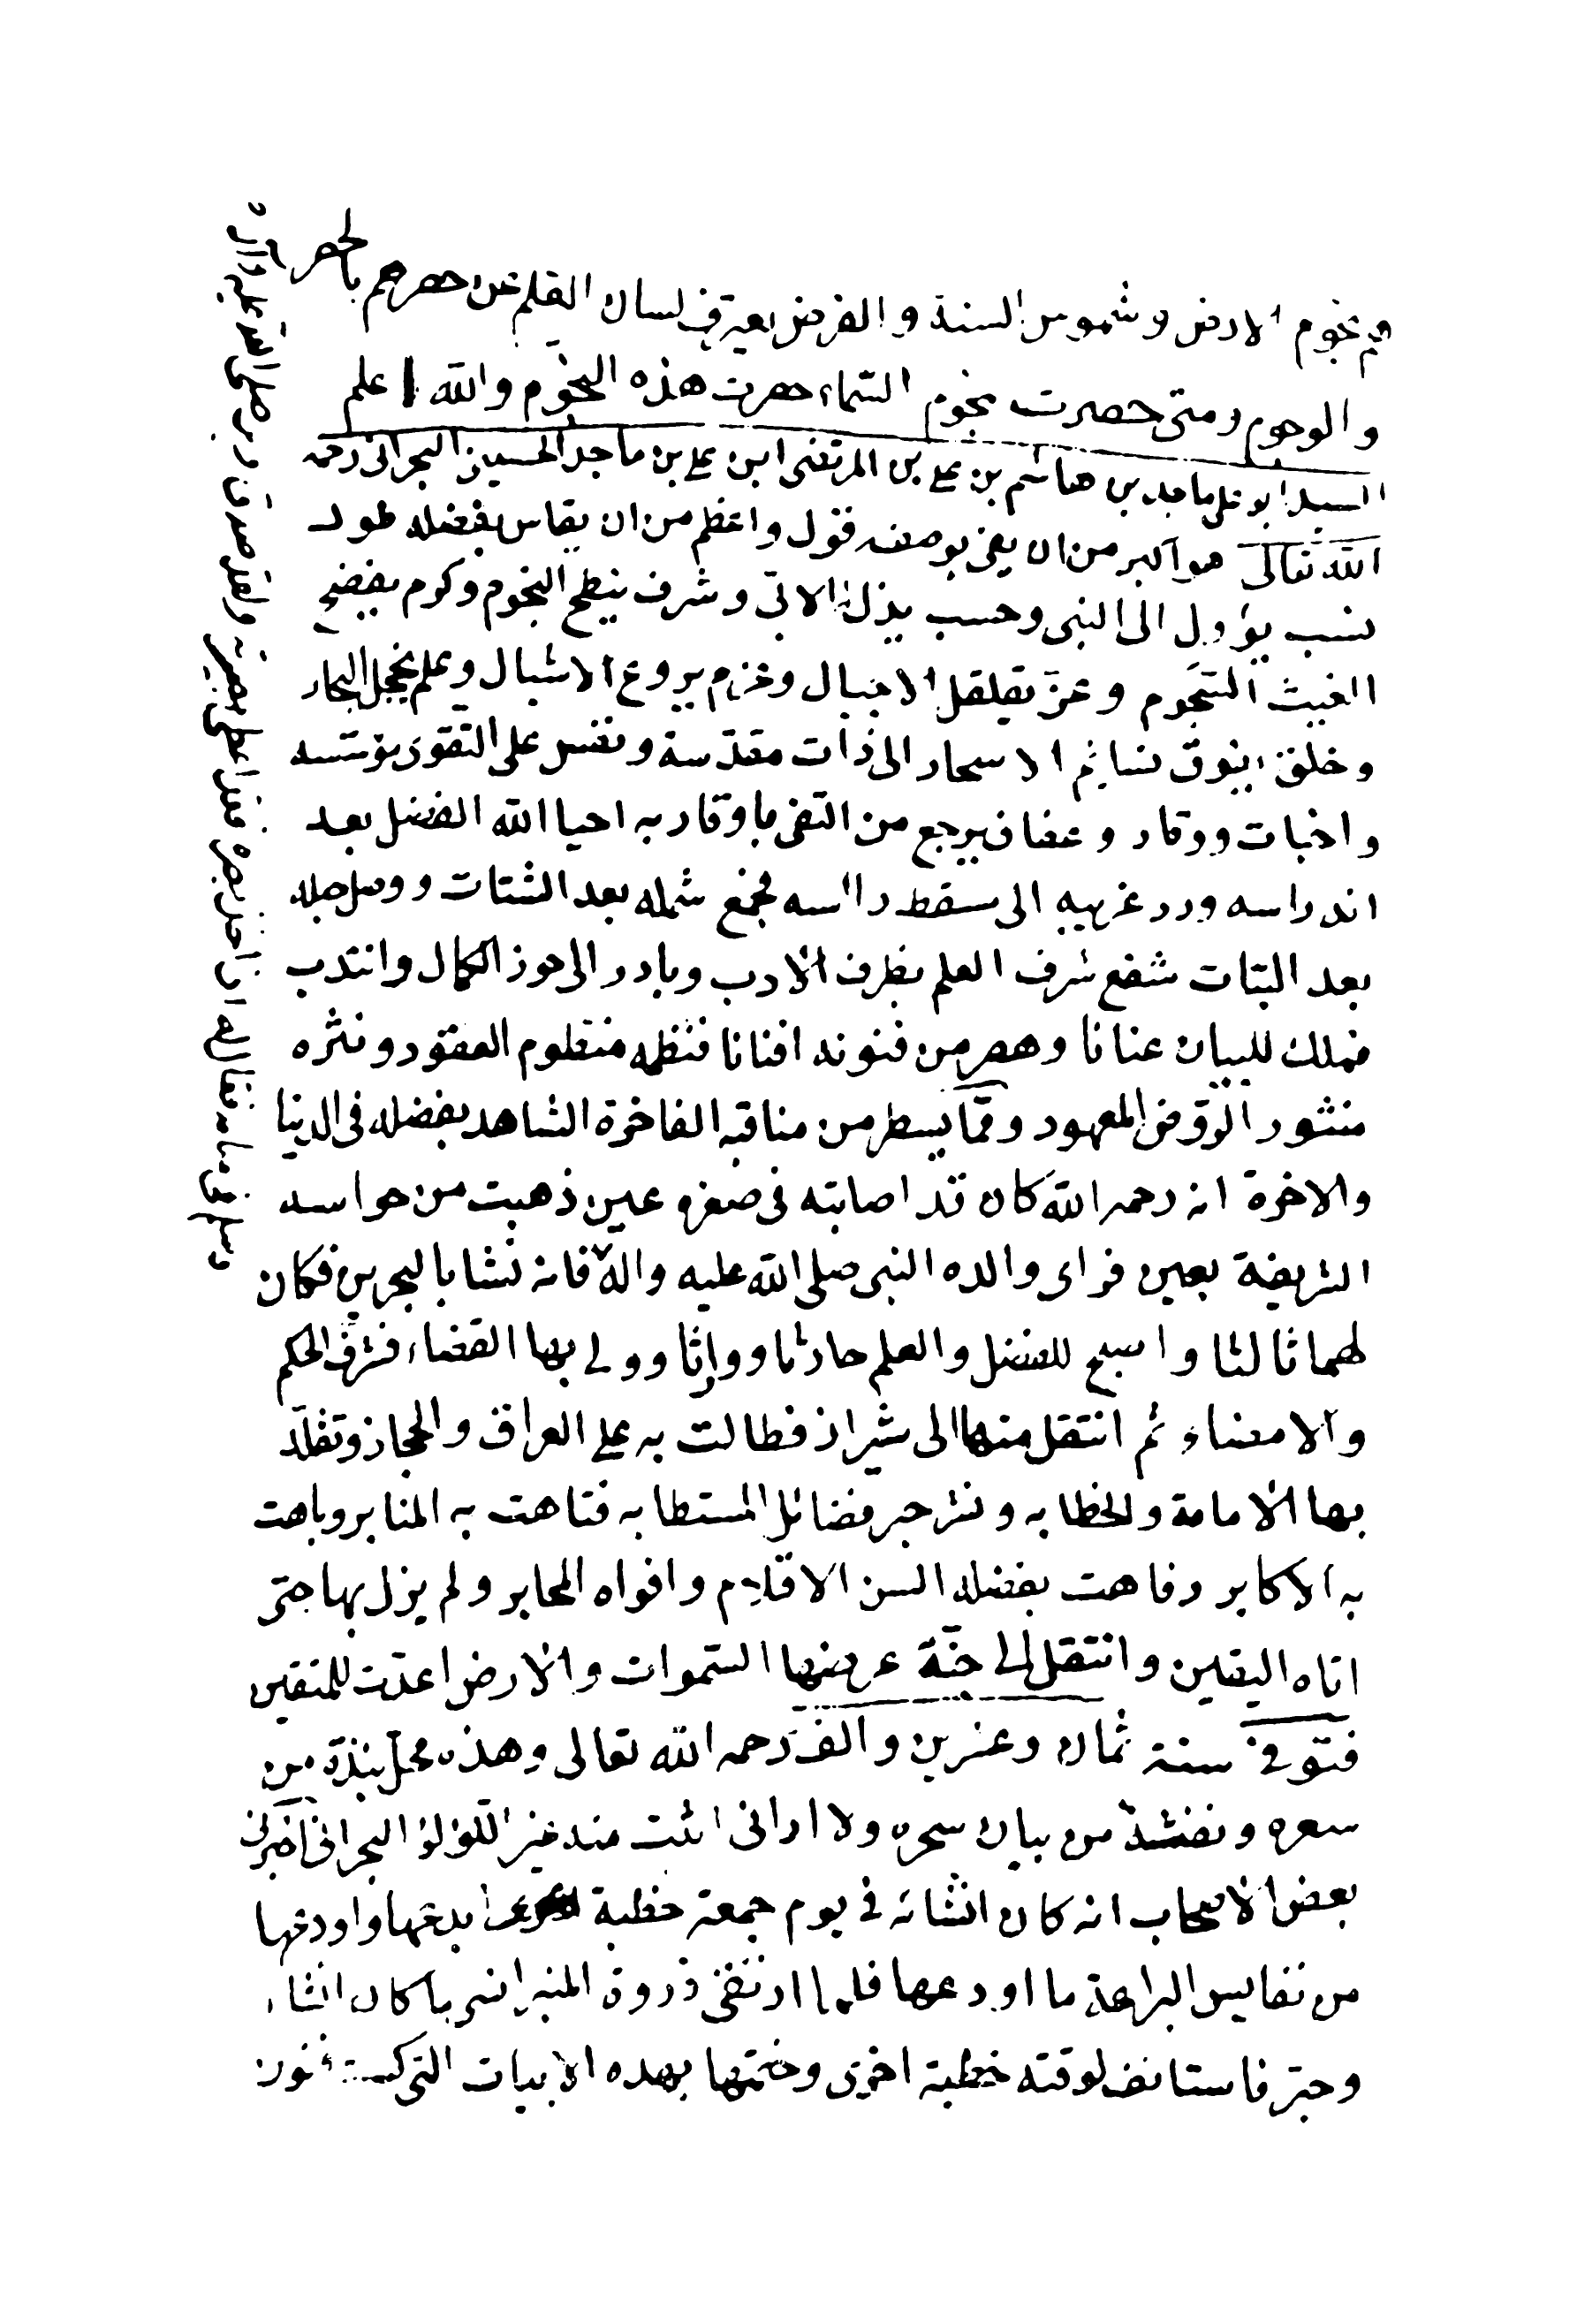 هم نجوم الارض و شموس السنة و الفرض يعترف لسان القلم عن حصرهم بالحصر
والوجوم ومتى حصرت نجوم السّماء حصرت هذه النجوم والله اعلم
السيد ابو علي ماجد بن هاشم بن علي بن المرتضى ابن علي بن ماجد الحسيني البحراني رحمه
الله تعالى هو اكبر من ان يفى بوصفه قول واعظم من ان يقاس بفضله طول
نسب يؤول الى النبي وحسب يذل له الابي وشرف ينطح النجوم وكرم يفضح
الغيث السّجوم وعزّ يقلقل الاجبال وعزم يروع الاشبال وعلم يخجل البحار
وخلق يفوق نسايم الاسحار الى ذات مقدّسة ونفس على التقوى مؤسّسه
واخبات ووقار وعفاف يرجع من التقى باوقار به احيا الله الفضل بعد
اندراسه ورد غريبه الى مسقط رااسه فجمع شمله بعد الشتات ووصل حبله
بعد البتات شفع شرف العلم بظرف الادب وبادر الى حوز الكمال وانتدب
فملك للبيان عنانا وهصر من فنونه افنانا فنظمه منظوم العقود ونثره
منثور الرّوض المعهود وممّا يسطر من مناقبه الفاخرة الشاهد بفضله في الدنيا
والاخرة انه رحمه الله كان قد اصابته في صغره عين ذهبت من حواسه
الشريفة بعين فراى والده النبي صلى الله عليه واله
فانه نشا بالبحرين فكان
لهما ثالثا واصبح للفضل والعلم حارثا ووارثا وولي بها القضاء فشرّف الحكم
والامضاء ثم انتقل منها الى شيراز فطالت به على العراق والحجاز وتقلّد
بها الامامة والخطابه ونشر حبر فضائله المستطابه فتاهت به المنابر وباهت
به الاكابر وفاهت بفضله السن الاقلام وافواه المحابر ولم يزل بها حتى
اتاه اليقين وانتقل الى جنّة عرضها السّموات والارض اعدّت للمتقين
فتوفي سنة ثمان وعشرين والف رحمه الله تعالى وهذه محل نبذة من
شعره ونفثة من بيان سحره ولا اراني اثبت منه غير اللؤلؤ البحراني اخبرني
بعض الاصحاب انه كان انشائه في يوم جمعة خطبة ابدعها واودعها
من نفايس البراعة ما اودعها فلما ارتقى ذروة المنبر انسي ما كان انشاء
وحبّر فاستانف لوقته خطبة اخرى وختمها بهذه الابيات التى
في منامه فقال له ان اخذ بصره فقد اعطي بصيرته ولقد صدق وبر صلى الله عليه واله